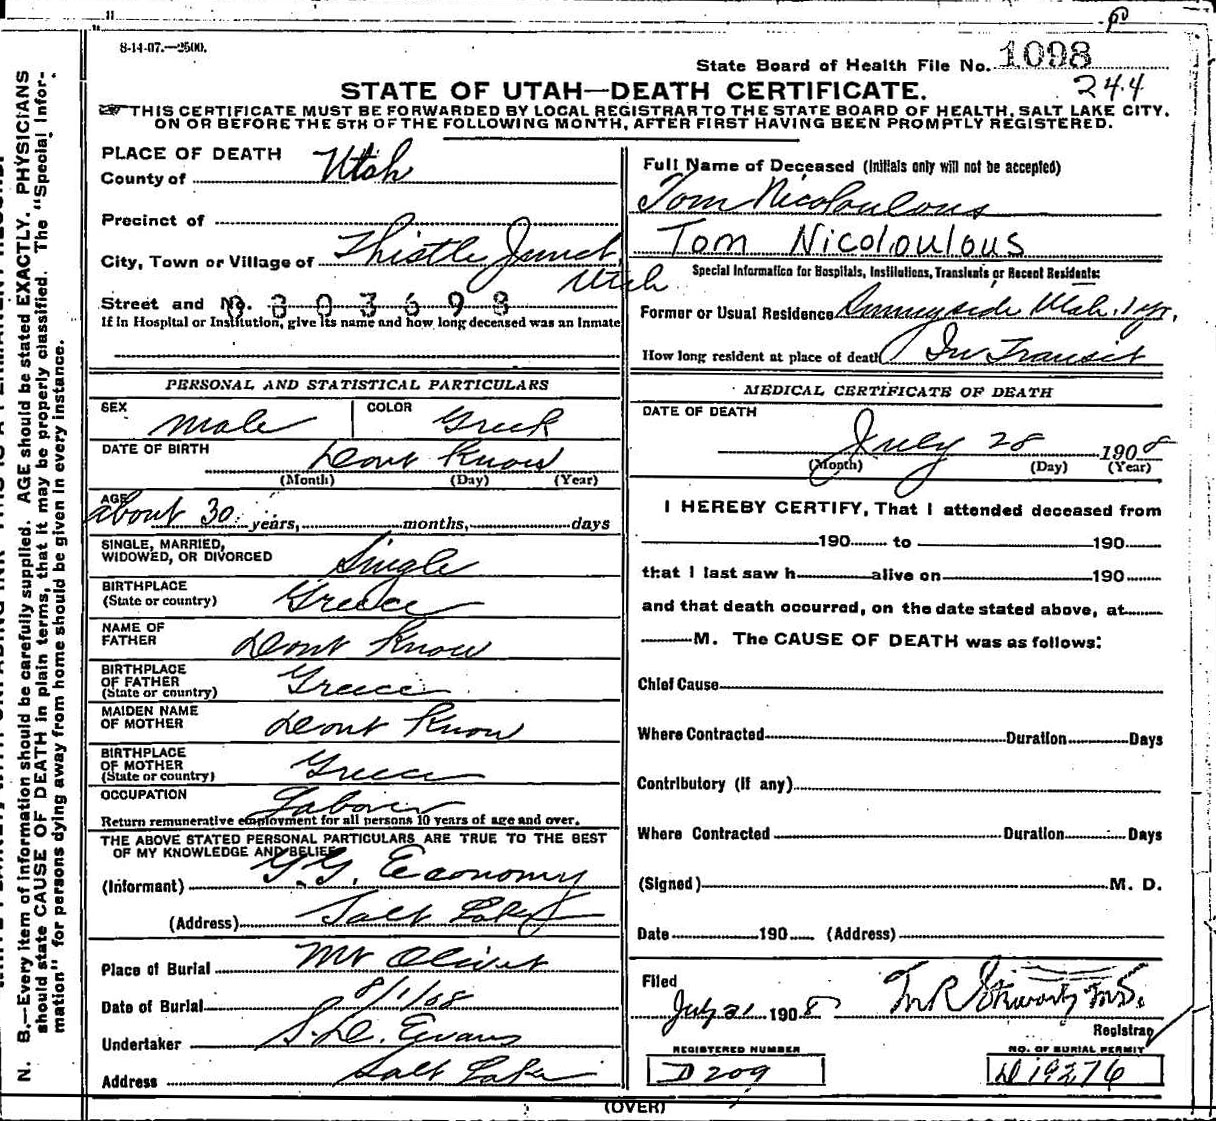 8-14-07.—2500.
State Board of Health File No. 1098
244
STATE OF UTAH—DEATH CERTIFICATE.
THIS CERTIFICATE MUST BE FORWARDED BY LOCAL REGISTRAR TO THE STATE BOARD OF HEALTH, SALT LAKE CITY.
ON OR BEFORE THE 5TH OF THE FOLLOWING MONTH, AFTER FIRST HAVING BEEN PROMPTLY REGISTERED.
PLACE OF DEATH
County of Utah
Precinct of
City, Town or Village of Thistle Junct
Utah
Street and No. 303698
If in Hospital or Institution, give its name and how long deceased was an Inmate
PERSONAL AND STATISTICAL PARTICULARS
SEX Male COLOR Greek
DATE OF BIRTH Dont Know
(Month) (Day) (Year)
AGE about 30 years, months, days
SINGLE, MARRIED,
WIDOWED, OR DIVORCED Single
BIRTHPLACE
(State or country) Greece
NAME OF
FATHER Dont Know
BIRTHPLACE
OF FATHER
(State or country) Greece
MAIDEN NAME
OF MOTHER Dont Know
BIRTHPLACE
OF MOTHER
(State or country) Greece
OCCUPATION Laborer
Return remunerative employment for all persons 10 years of age and over.
THE ABOVE STATED PERSONAL PARTICULARS ARE TRUE TO THE BEST
OF MY KNOWLEDGE AND BELIEF
(Informant) G. G. Economy
(Address) Salt Lake
Place of Burial Mt Olivet
Date of Burial 8/1/08
Undertaker S. D. Evans
Address Salt Lake
Full Name of Deceased (Initials only will not be accepted)
Tom Nicoloulous
Tom Nicoloulous
Special Information for Hospitals, Institutions, Transients or Recent Residents:
Former or Usual Residence Sunnyside Utah. 1 yr.
How long resident at place of death In Transit
MEDICAL CERTIFICATE OF DEATH
DATE OF DEATH
July 28 1908
(Month) (Day) (Year)
I HEREBY CERTIFY, That I attended deceased from
190 to 190
that I last saw h alive on 190
and that death occurred, on the date stated above, at
M. The CAUSE OF DEATH was as follows:
Chief Cause
Where Contracted Duration Days
Contributory (if any)
Where Contracted Duration Days
(Signed) M. D.
Date 190 (Address)
Filed
July 31 1908
Registrar
REGISTERED NUMBER
D 209
NO. OF BURIAL PERMIT
D 19276
(OVER)
N. B.—Every item of information should be carefully supplied. AGE should be stated EXACTLY. PHYSICIANS
should state CAUSE OF DEATH in plain terms, that it may be properly classified. The "Special Infor-
mation" for persons dying away from home should be given in every instance.